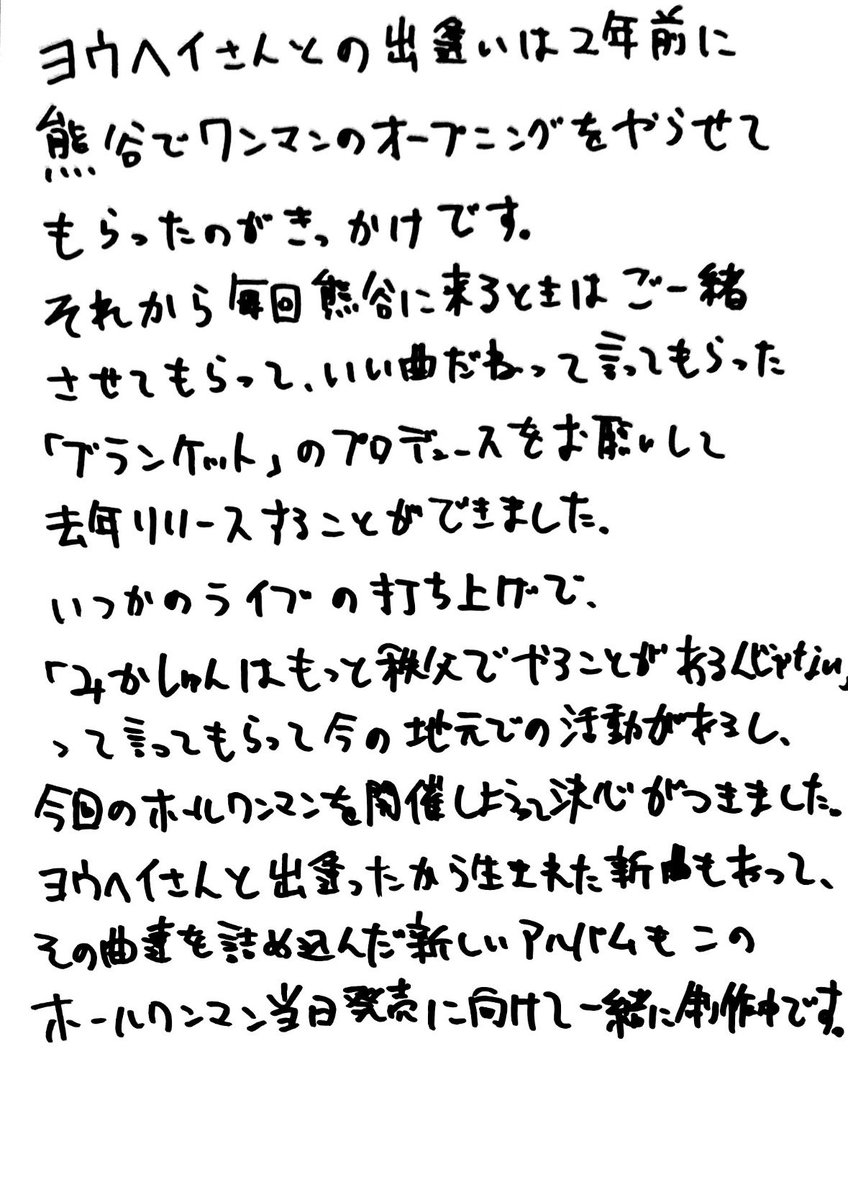 ヨウヘイさんとの出逢いは2年前に
熊谷でワンマンのオープニングをやらせて
もらったのがきっかけです。
それから毎回熊谷に来るときはご一緒
させてもらって、いい曲だねって言ってもらった
「ブランケット」のプロデュースをお願いして
去年リリースすることができました。
いつかのライブの打ち上げで、
「みかしゅんはもっと秩父でやることがあるんじゃない」
って言ってもらって今の地元での活動があるし、
今回のホールワンマンを開催しようって決心がつきました。
ヨウヘイさんと出逢ったから生まれた新曲もあって、
その曲達を詰め込んだ新しいアルバムもこの
ホールワンマン当日発売に向けて一緒に制作中です。